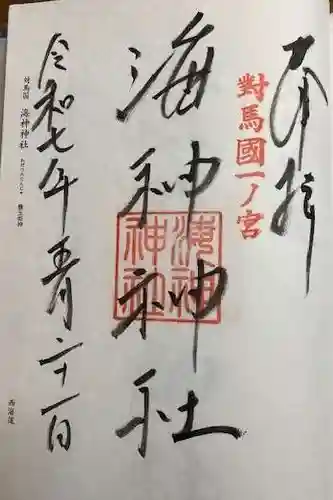 奉拝
對馬國一ノ宮
海神神社
海神神社
令和七年
二十一日
對馬國
海神神社
西海道